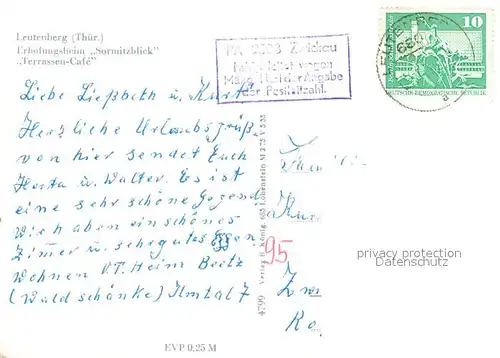 Leutenberg (Thür.)
Erholungsheim „Sormitzblick"
„Terrassen-Café"
PA 9503 Zwickau
Fehlgeleitet wegen
Mangelhafter Angabe
der Postleitzahl.
10
DEUTSCHE DEMOKRATISCHE REPUBLIK
Liebe Ließbeth u. Kurt!
Herzliche Urlaubsgrüße
von hier sendet Euch
Herta u. Walter. Es ist
eine sehr schöne Gegend
Wir haben ein schönes
Zimer u. sehr gutes Essen.
Wohnen V.T. Heim Beetz
(Waldschänke) Ilmtal 7
EVP 0,25 M
4799 Verlag R. König, 685 Lobenstein M 275 V 5 33
95
Famili
Kur
Zw
Ro
privacy protection
Datenschutz